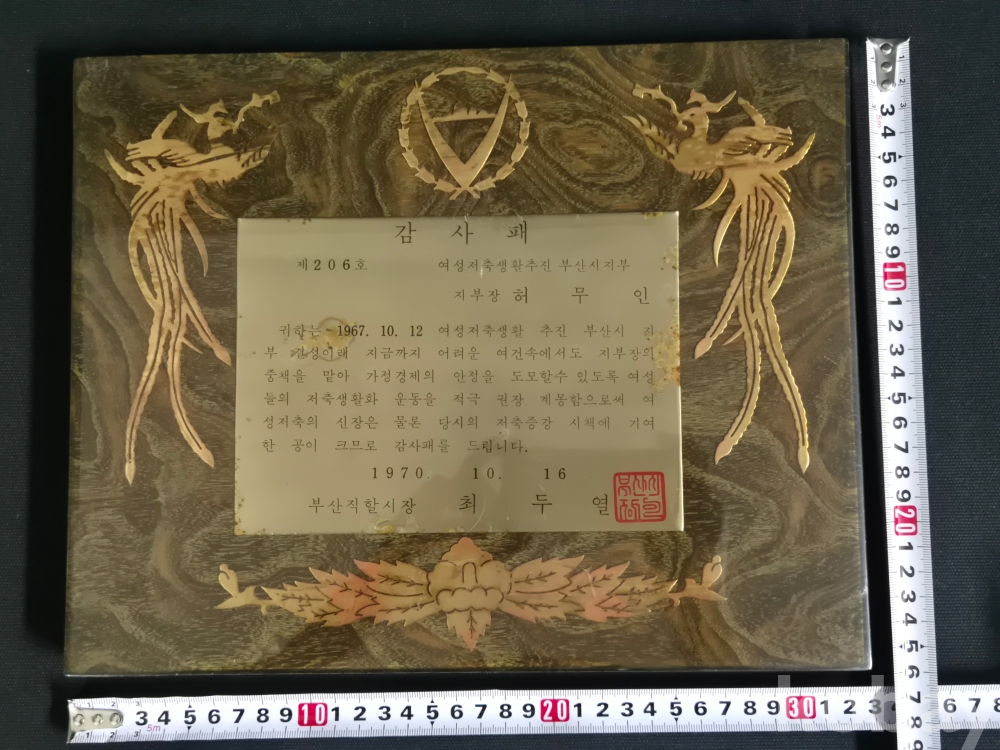 감 사 패
제206호 여성저축생활추진 부산시지부
지부장 허 무 인
귀하는 1967. 10. 12 여성저축생활 추진 부산시 지
부 결성이래 지금까지 어려운 여건속에서도 지부장의
중책을 맡아 가정경제의 안정을 도모할수 있도록 여성
들의 저축생활화 운동을 적극 권장 계몽함으로써 여
성저축의 신장은 물론 당시의 저축증강 시책에 기여
한 공이 크므로 감사패를 드립니다.
1970. 10. 16
부산직할시장 최 두 열
3 4 5 6 7 8 9 10 1 2 3 4 5 6 7 8 9 20 1 2 3 4 5 6 7 8 9
5m
3 4 5 6 7 8 9 10 1 2 3 4 5 6 7 8 9 20 1 2 3 4 5 6 7 8 9 30 1 2 3 6 7 8
5m